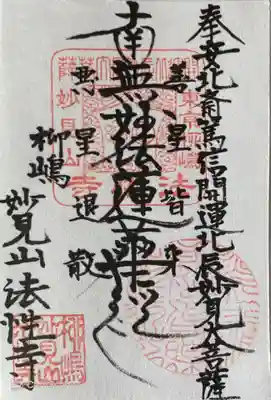 奉安北斎篤信開運北辰妙見大菩薩
善星皆来
南無妙法蓮華経
悪星退散
柳嶋
妙見山法性寺